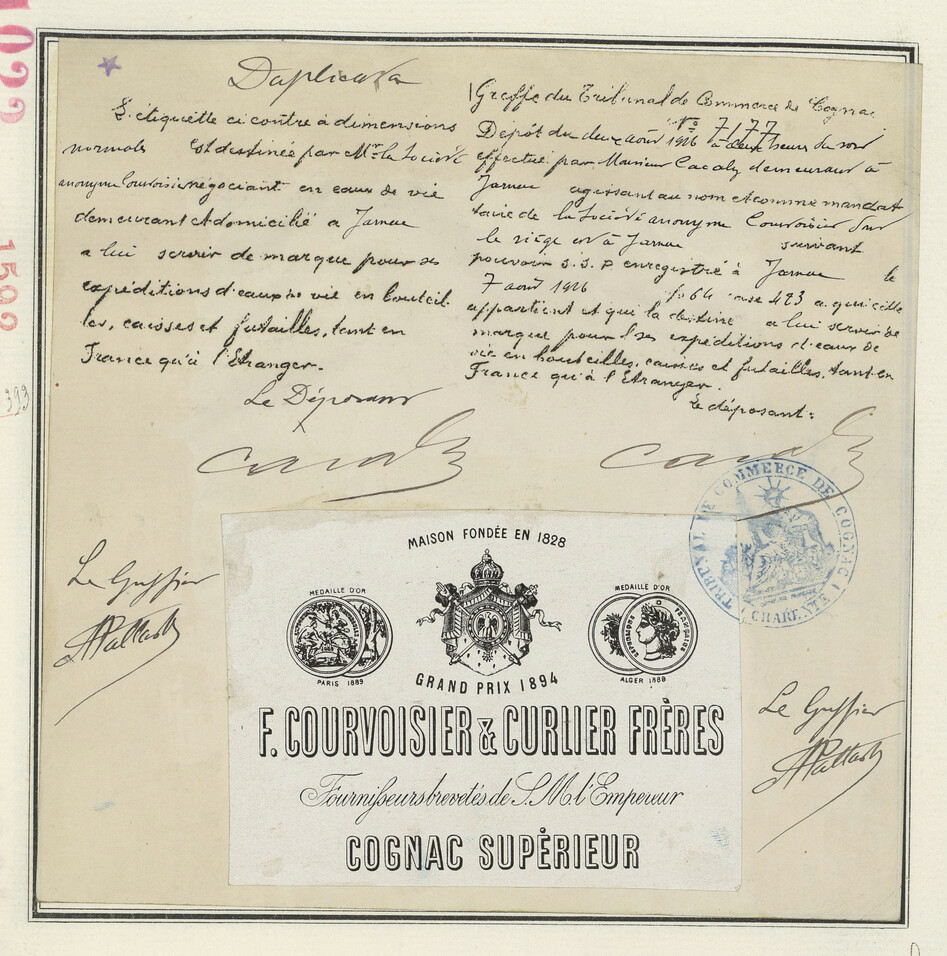 Duplicata
L'étiquette ci contre à dimensions
normales est destinée par Mr. la Société
anonyme Courvoisier négociant en eaux de vie
demeurant et domicilié a Jarnac
a lui servir de marque pour ses
expéditions d'eaux de vie en bouteil-
les, caisses et futailles, tant en
France qu'à l'Etranger.
Le Déposant
Greffe du Tribunal de Commerce de Cognac.
No 7177
Dépôt du deux août 1926 à deux heures du soir
effectué par Monsieur demeurant à
Jarnac agissant au nom et comme mandat
taire de la Société anonyme Courvoisier dont
le siège est à Jarnac suivant
pouvoir S.S.P enregistré à Jarnac le
7 août 1926 fo 64 case 423 a qui elle
appartient et qui la destine a lui servir de
marque pour ses expéditions d'eaux de
vie en bouteilles, caisses et futailles, tant en
France qu'à l'Etranger.
Le déposant:
TRIBUNAL DE COMMERCE DE COGNAC
CHARENTE
Le Greffier
Le Greffier
MAISON FONDÉE EN 1828
MEDAILLE D'OR
MEDAILLE D'OR
RÉPUBLIQUE FRANÇAISE
PARIS 1889
ALGER 1888
GRAND PRIX 1894
F. COURVOISIER & CURLIER FRÈRES
Fournisseurs brevetés de S.M. l'Empereur
COGNAC SUPÉRIEUR
1022
1592
393